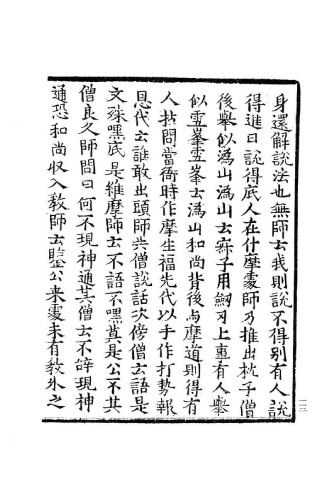 身還解說法也無師云我則說不得別有人說
得進日說得底人在什摩處師乃推出枕子僧
後舉似溈山溈山云寂子用劒刃上事有人舉
似靈峯靈峯云溈山和尚背後与摩道則得有
人拈問當衙時作摩生福先代以手作打勢報
恩代云誰敢出頭師共僧說話次傍僧云語是
文殊嘿底是維摩師云不語不嘿莫是公不其
僧良久師問曰何不現神通其僧云不辝現神
通恐和尚収入教師云鑒公来處未有教外之
一三